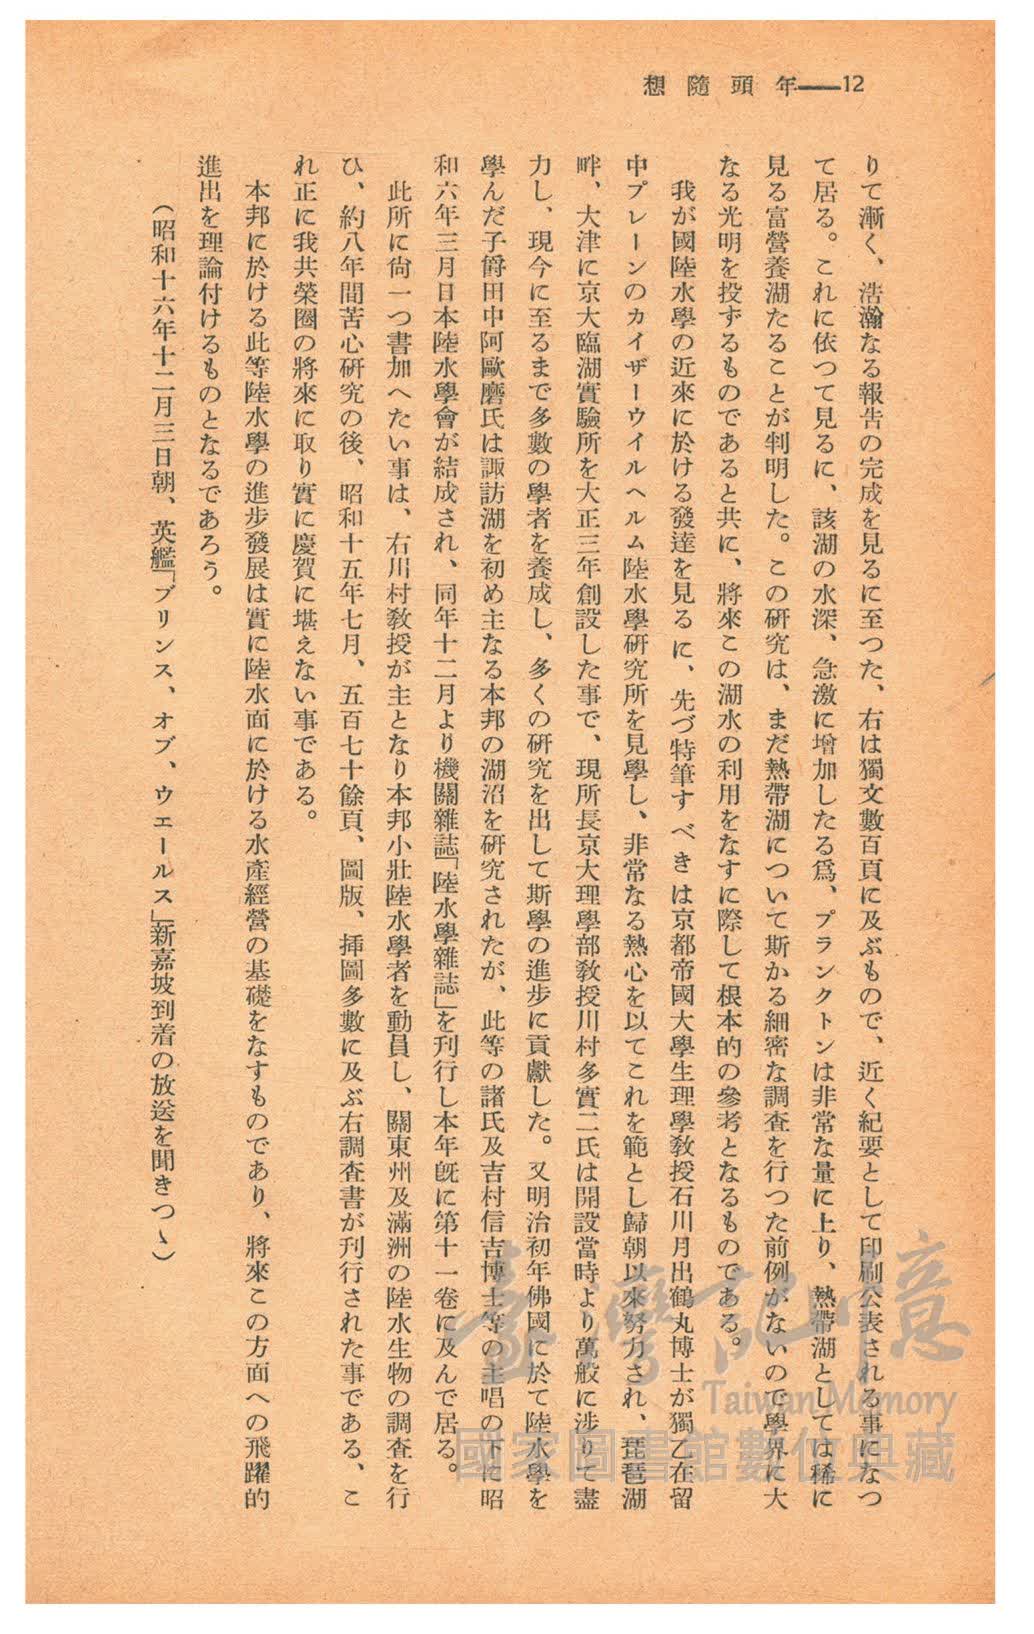 想隨頭年——12
りて漸く、浩瀚なる報告の完成を見るに至つた、右は獨文數百頁に及ぶもので、近く紀要として印刷公表される事になつ
て居る。これに依つて見るに、該湖の水深、急激に增加したる爲、プランクトンは非常な量に上り、熱帶湖としては稀に
見る富營養湖たることが判明した。この硏究は、まだ熱帶湖について斯かる細密な調査を行つた前例がないので學界に大
なる光明を投ずるものであると共に、將來この湖水の利用をなすに際して根本的の參考となるものである。
我が國陸水學の近來に於ける發達を見るに、先づ特筆すべきは京都帝國大學生理學敎授石川日出鶴丸博士が獨乙在留
中プレーンのカイザーウイルヘルム陸水學硏究所を見學し、非常なる熱心を以てこれを範とし歸朝以來努力され、琵琶湖
畔、大津に京大臨湖實驗所を大正三年創設した事で、現所長京大理學部敎授川村多實二氏は開設當時より萬般に涉りて盡
力し、現今に至るまで多數の學者を養成し、多くの硏究を出して斯學の進步に貢獻した。又明治初年佛國に於て陸水學を
學んだ子爵田中阿歐磨氏は諏訪湖を初め主なる本邦の湖沼を硏究されたが、此等の諸氏及吉村信吉博士等の主唱の下に昭
和六年三月日本陸水學會が結成され、同年十二月より機關雜誌「陸水學雜誌」を刊行し本年旣に第十一卷に及んで居る。
此所に尙一つ書加へたい事は、右川村敎授が主となり本邦小壯陸水學者を動員し、關東州及滿洲の陸水生物の調査を行
ひ、約八年間苦心硏究の後、昭和十五年七月、五百七十餘頁、圖版、挿圖多數に及ぶ右調査書が刊行された事である、こ
れ正に我共榮圈の將來に取り實に慶賀に堪えない事である。
本邦に於ける此等陸水學の進步發展は實に陸水面に於ける水產經營の基礎をなすものであり、將來この方面への飛躍的
進出を理論付けるものとなるであろう。
（昭和十六年十二月三日朝、英艦「プリンス、オブ、ウェールス」新嘉坡到着の放送を聞きつゝ）
臺灣記憶
Taiwan Memory
國家圖書館數位典藏